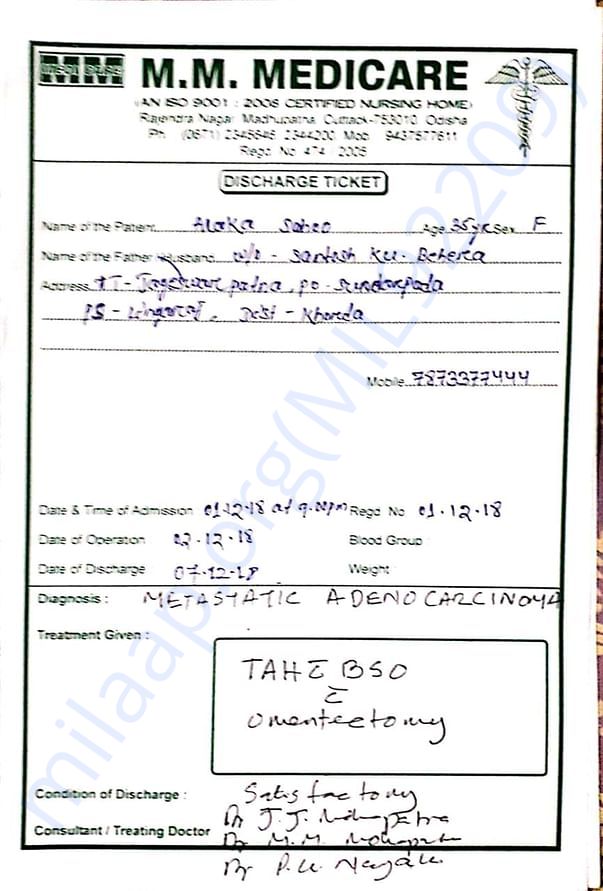 MM
M.M. MEDICARE
(AN ISO 9001 : 2008 CERTIFIED NURSING HOME)
Rajendra Nagar Madhupatna, Cuttack-753010, Odisha
Ph. (0671) 2345646, 2344200, Mob. 9437577611
Regd. No. 474 / 2006
DISCHARGE TICKET
Name of the Patient Alaka Sahoo Age 35yr Sex F
Name of the Father / Husband w/o - Santosh Ku. Behera
Address AT - Jageswar patna, po - Sundarpada
PS - Lingaraj, Dist - Khorda
Mobile 7873377444
Date & Time of Admission 01.12.18 at 9.00pm Regd. No. 01.12.18
Date of Operation 02.12.18 Blood Group :
Date of Discharge 07.12.18 Weight :
Diagnosis : METASTATIC ADENOCARCINOMA
Treatment Given :
TAH c̄ BSO
c̄
Omentectomy
Condition of Discharge : Satisfactory
Dr J.J. Mohapatra
Consultant / Treating Doctor Dr M.M. Mohapatra
Dr P.K. Nayak
milaap.org(MIL922209)